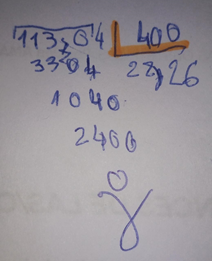 113,04 400
3304 28,26
1040
2400
0